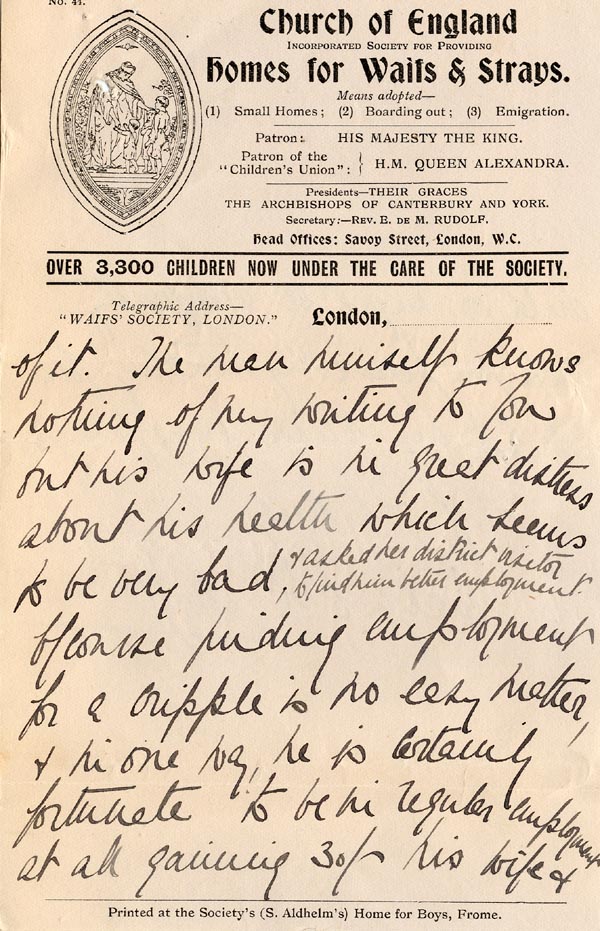 No. 44.
Church of England
INCORPORATED SOCIETY FOR PROVIDING
Homes for Waifs & Strays.
Means adopted—
(1) Small Homes; (2) Boarding out; (3) Emigration.
Patron: HIS MAJESTY THE KING.
Patron of the "Children's Union": } H.M. QUEEN ALEXANDRA.
Presidents—THEIR GRACES
THE ARCHBISHOPS OF CANTERBURY AND YORK.
Secretary:—REV. E. DE M. RUDOLF.
Head Offices: Savoy Street, London, W.C.
OVER 3,300 CHILDREN NOW UNDER THE CARE OF THE SOCIETY.
Telegraphic Address—
"WAIFS' SOCIETY, LONDON."
London,
of it. The man himself knows
nothing of my writing to you
but his wife is in great distress
about his health which seems
to be very bad, & asked her district visitor
to find him better employment.
Of course finding employment
for a cripple is no easy matter,
& in one way, he is certainly
fortunate to be in regular employment
at all gaining 30/- his wife &
Printed at the Society's (S. Aldhelm's) Home for Boys, Frome.